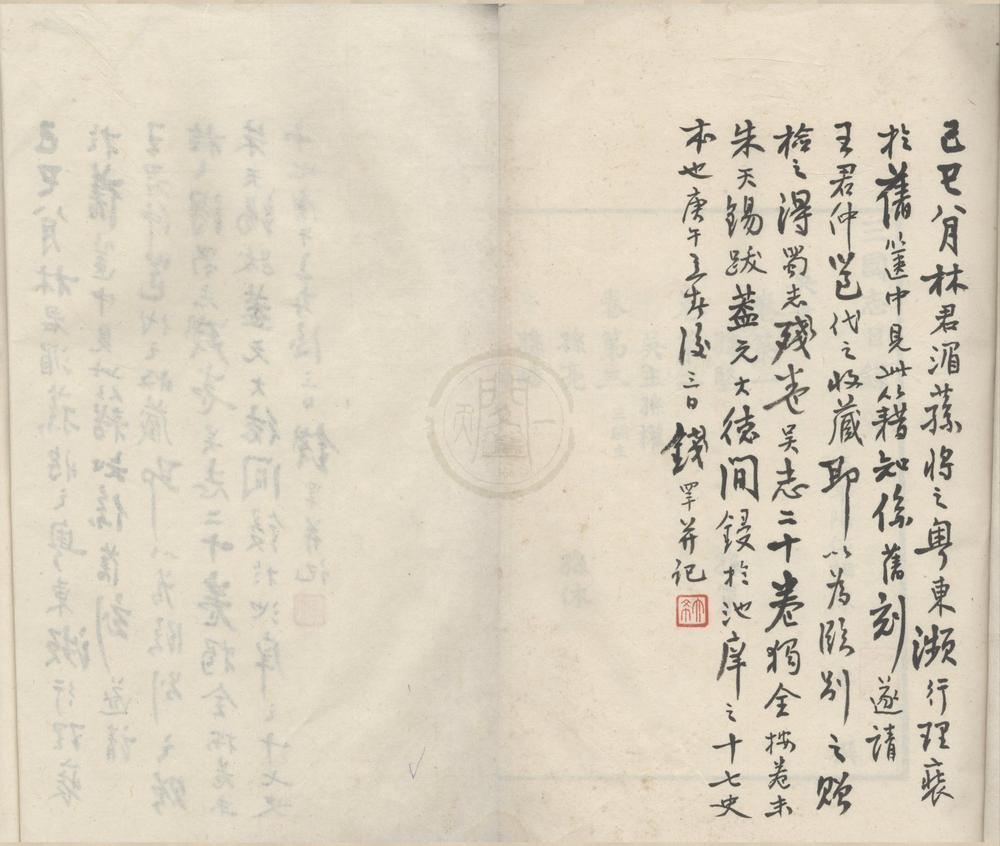 己巳八月林君湄蓀將之粵東瀕行理裝
於舊篋中見此籍知係舊刻遂請
王君仲邕代之收藏耶以為臨別之贈
檢之得蜀志殘卷吳志二十卷獨全按卷末
朱天錫跋蓋元大德間鋟於池庠之十七史
本也庚午立春後三日錢罕并記